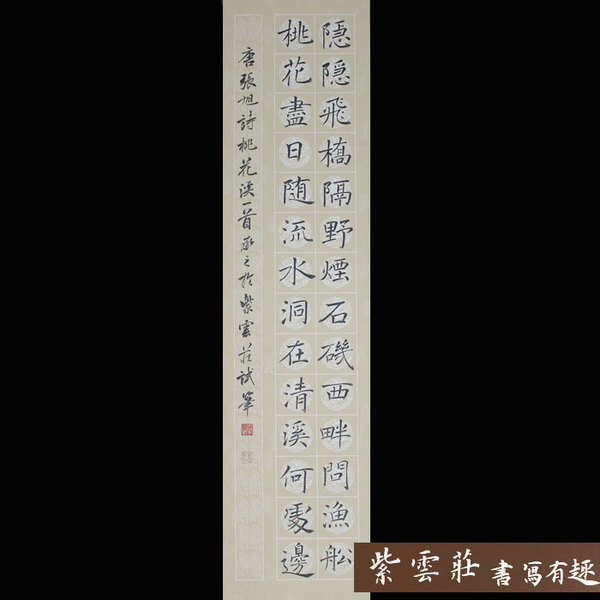 隱隱飛橋隔野煙石磯西畔問漁船
桃花盡日随流水洞在清溪何處邊
唐張旭詩桃花溪一首承之於紫雲莊試筆
紫雲莊 書寫有趣